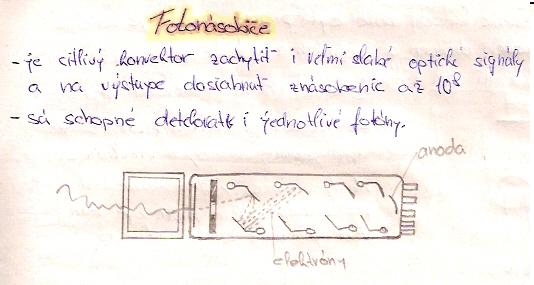 Fotonásobiče
- je citlivý konvektor zachytiť i veľmi slabé optické signály
a na výstupe dosiahnuť znásobenie až 10⁸
- sú schopné detekovať i jednotlivé fotóny.
anoda
elektróny